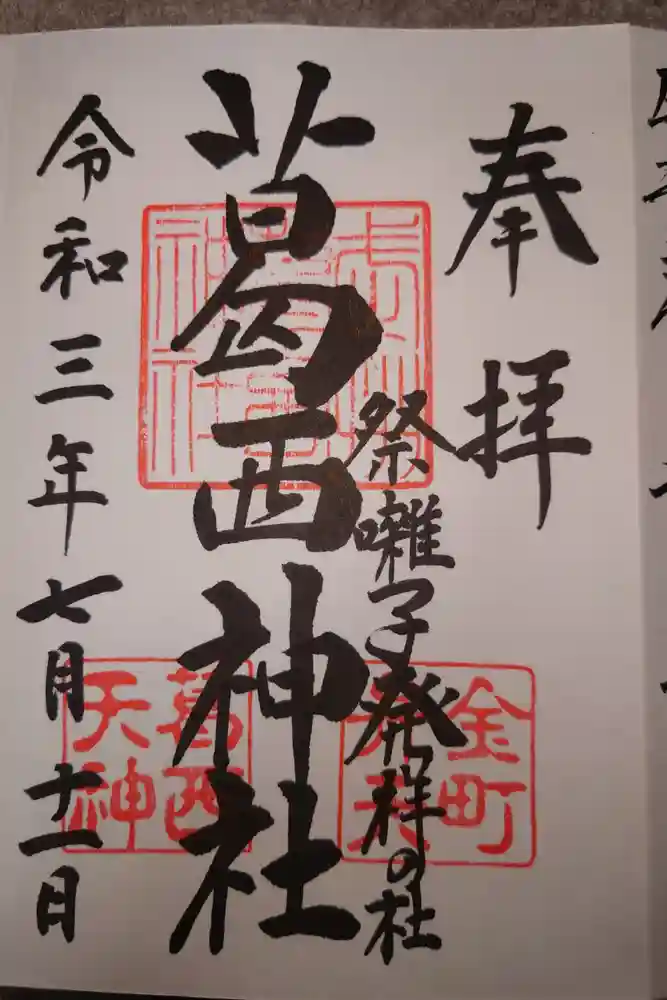 奉拝
祭囃子発祥の杜
葛西神社
令和三年七月十一日
葛西
天神
金町